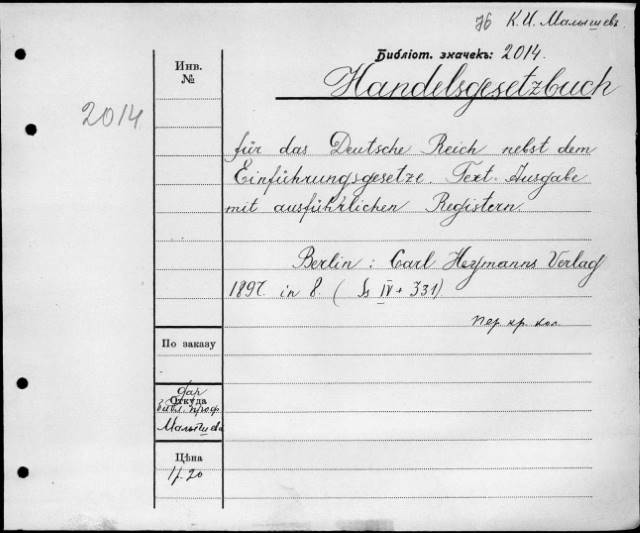 76 К.И. Малышевъ
Инв.
№
Библіот. значекъ: 2014.
Handelsgesetzbuch
2014
für das Deutsche Reich nebst dem
Einführungsgesetze. Text-Ausgabe
mit ausführlichen Registern.
Berlin: Carl Heymanns Verlag
1897. in 8. (Ss IV + 331)
пер. кр. кол.
По заказу
Откуда
дар
библ. проф
Малышева
Цѣна
1р.20